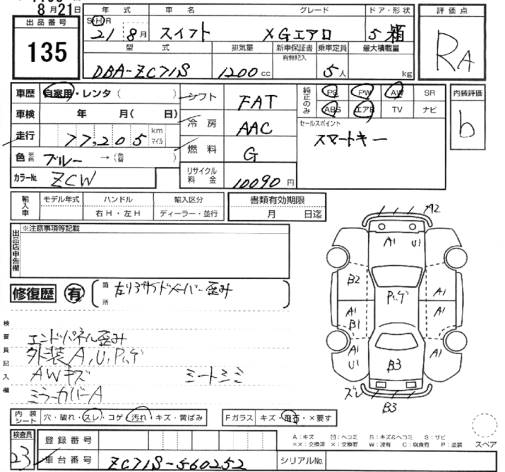 8月21日
出品番号
135
年式 車名 グレード ドア・形状
S(H)R
21年 8月 スイフト XGエアロ 5 箱
型式 排気量 新車保証書 乗車定員 最大積載量
有無記入
DBA-ZC71S 1200cc 5人 kg
評価点
RA
車歴 自家用・レンタ( )
車検 年 月( 日)
走行 77,205 km マイル
色 ブルー →(
カラーNo. ZCW
シフト FAT
冷房 AAC
燃料 G
リサイクル料金 10090円
純正のみ
PS PW AW SR
ABS エアB TV ナビ
セールスポイント
スマートキー
内装評価
b
輸入車
モデル年式 ハンドル 輸入区分
右H・左H ディーラー・並行
書類有効期限
月 日迄
出品店申告欄
※注意事項等記載
修復歴 有
箇所
検査員記入欄
エンドパネル歪み
外装A,U,Pゲ
AWキズ シートシミ
ミラーカバーA
A2
A1 U1
B2 A1
Pゲ
A1 B1 A1
A1 U1
B3
ズレ B3
内装シート 穴・破れ・スレ・コゲ・汚れ・キズ・黄ばみ
Fガラス キズ・
・×要す
A:キズ U:ヘコミ B:キズ&ヘコミ S:サビ
スペア
検査員
23
登録番号
車台番号 ZC71S-560252
シリアルNo.